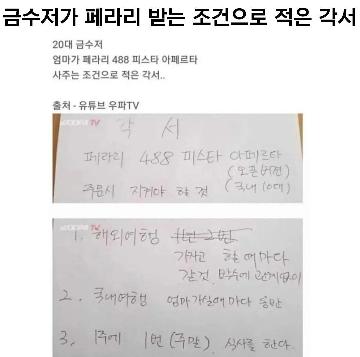 금수저가 페라리 받는 조건으로 적은 각서
20대 금수저
엄마가 페라리 488 피스타 아페르타
사주는 조건으로 적은 각서..
출처 - 유튜브 우파TV
TV
각 서
페라리 488 피스타 아페르타
(오픈버전)
주문시 지켜야 할 것 (국내 10대)
TV
1. 해외여행 1년 2번
가자고 할 때마다
같은것 관계없이
2. 국내여행 엄마 가실때마다 동반
3. 1주에 1번 (주말) 식사를 한다.